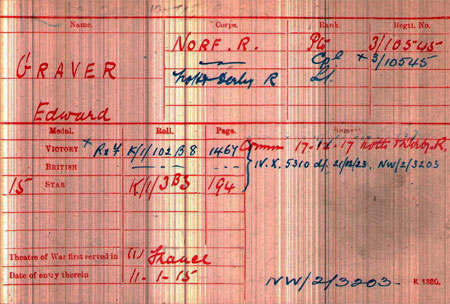 Name. Corps. Rank. Regtl. No.
GRAVER NORF. R. Pte 3/10545
Notts & Derby R Cpl x 3/10545
Edward Lt.
Medal. Roll. Page.
VICTORY x R27 K/1/102 B 8 1467 Comm 17-12-17 Notts & Derby. R.
BRITISH - do - - do - IV. X. 5310 d/ 21/12/23. NW/2/3203
15 STAR K/1/3B3 194
Theatre of War first served in (1) France
Date of entry therein 11-1-15 NW/2/3203
K 1380.